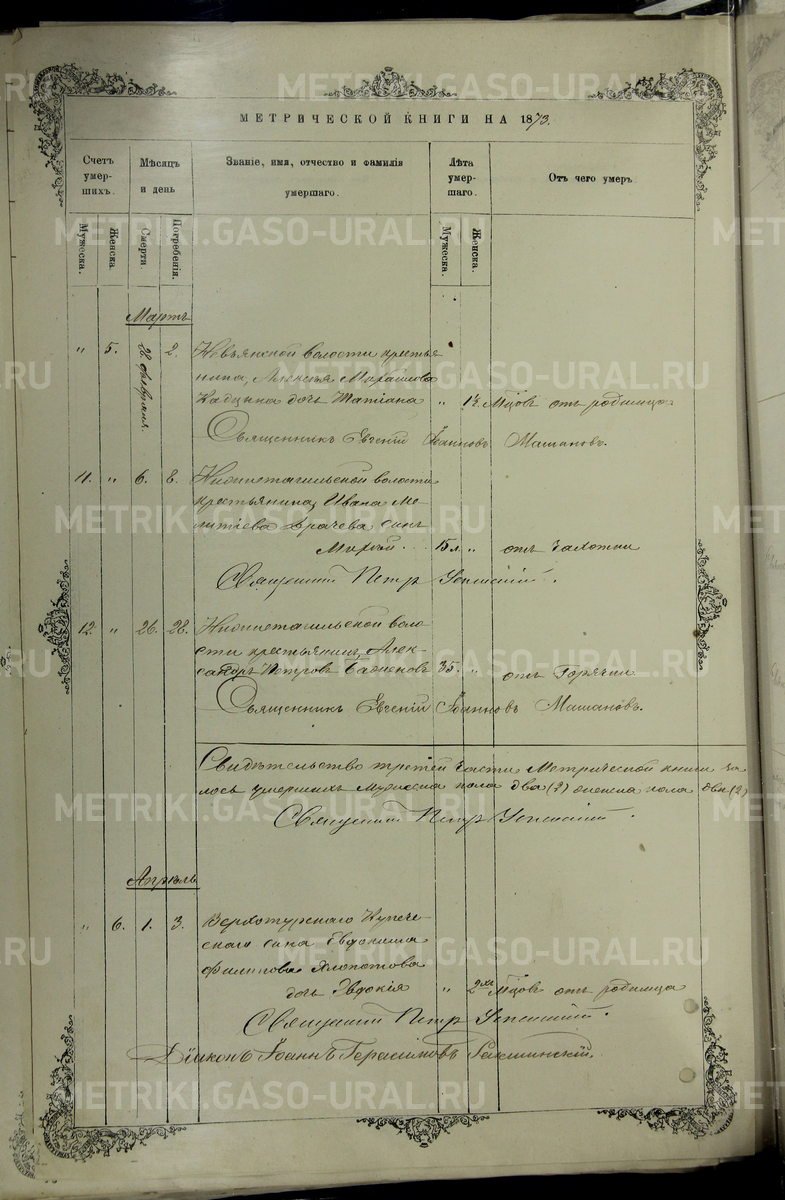 МЕТРИЧЕСКОЙ КНИГИ НА 1873.
Счетъ умер-шихъ.
Мѣсяцъ и день
Званіе, имя, отчество и фамилія умершаго.
Лѣта умер-шаго.
Отъ чего умеръ.
Мужеска.
Женска.
Смерти.
Погребенія.
Мужеска.
Женска.
Мартъ
" 5. 28 февраля. 2. Невьянской волости крестья-
нина, Алексѣя Михайлова
дочь Татіана " Мцовъ отъ родимца.
Священникъ Евгеній Іоанновъ Машановъ.
11. " 6. 8. Нижнетагильской волости
крестьянина, Ивана
Драчева сынъ
15 л. " отъ Чахотки
Священникъ Петръ Успенскій.
12. " 26. 28. Нижнетагильской воло-
сти крестьянинъ, Алек-
сандръ Петровъ Баженовъ 35. " отъ Горячки
Священникъ Евгеній Іоанновъ Машановъ.
Свидѣтельство третей части Метрической книги
умершихъ Мужеска пола два (2) женска пола два (2)
Священникъ Петръ Успенскій.
Апрѣль
" 6. 1. 3. Верхотурскаго Купече-
скаго сына Евдокима
Филипова Хлопотова
дочь Евдокія " 2хъ Мцовъ отъ родимца
Священникъ Петръ Успенскій.
Діаконъ Іоаннъ Герасимовъ
METRIKI.GASO-URAL.RU